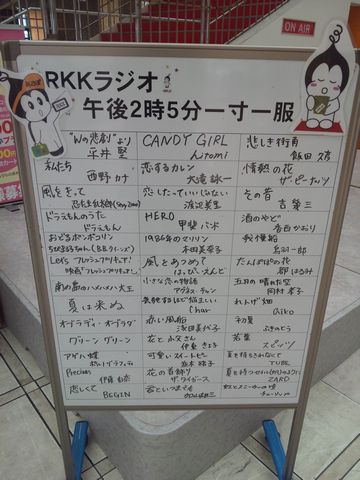 ON AIR
RKKラジオ
午後2時5分一寸一服
"Wの悲劇"より
平井 堅
私たち
西野 カナ
風をきって
ドラえもんのうた
ドラえもん
おどるポンポコリン
ちびまる子ちゃん (B.B.クィーンズ)
Let's フレッシュプリキュア!
映画"フレッシュプリキュア!"
南の島のハメハメハ大王
夏は来ぬ
オブラディ・オブラダ
グリーン グリーン
アゲハ蝶
ポルノグラフィティ
Precious
伊藤 由奈
恋しくて
BEGIN
CANDY GIRL
hitomi
恋するカレン
大滝 詠一
恋したっていいじゃない
渡辺 美里
HERO
甲斐 バンド
1986年のマリリン
本田 美奈子
風をあつめて
はっぴいえんど
小さな恋の物語
アグネス・チャン
気絶するほど悩ましい
Char
赤い風船
浅田 美代子
花と小父さん
伊東 きよ子
可愛いスイートピー
花の首飾り
ザ・タイガース
君といつまでも
加山雄三
悲しき街角
飯田 久彦
情熱の花
ザ・ピーナッツ
その昔
吉 幾三
酒のやど
香西 かおり
我慢船
鳥羽 一郎
たんぽぽの花
都 はるみ
五月の晴れた空
岡村 孝子
れんげ畑
Chiko
初夏
ふきのとう
若葉
スピッツ
夏を待ちきれなくて
TUBE
夏を待つセイル(帆)のように
ZARD
虹とスニーカーの頃
チューリップ